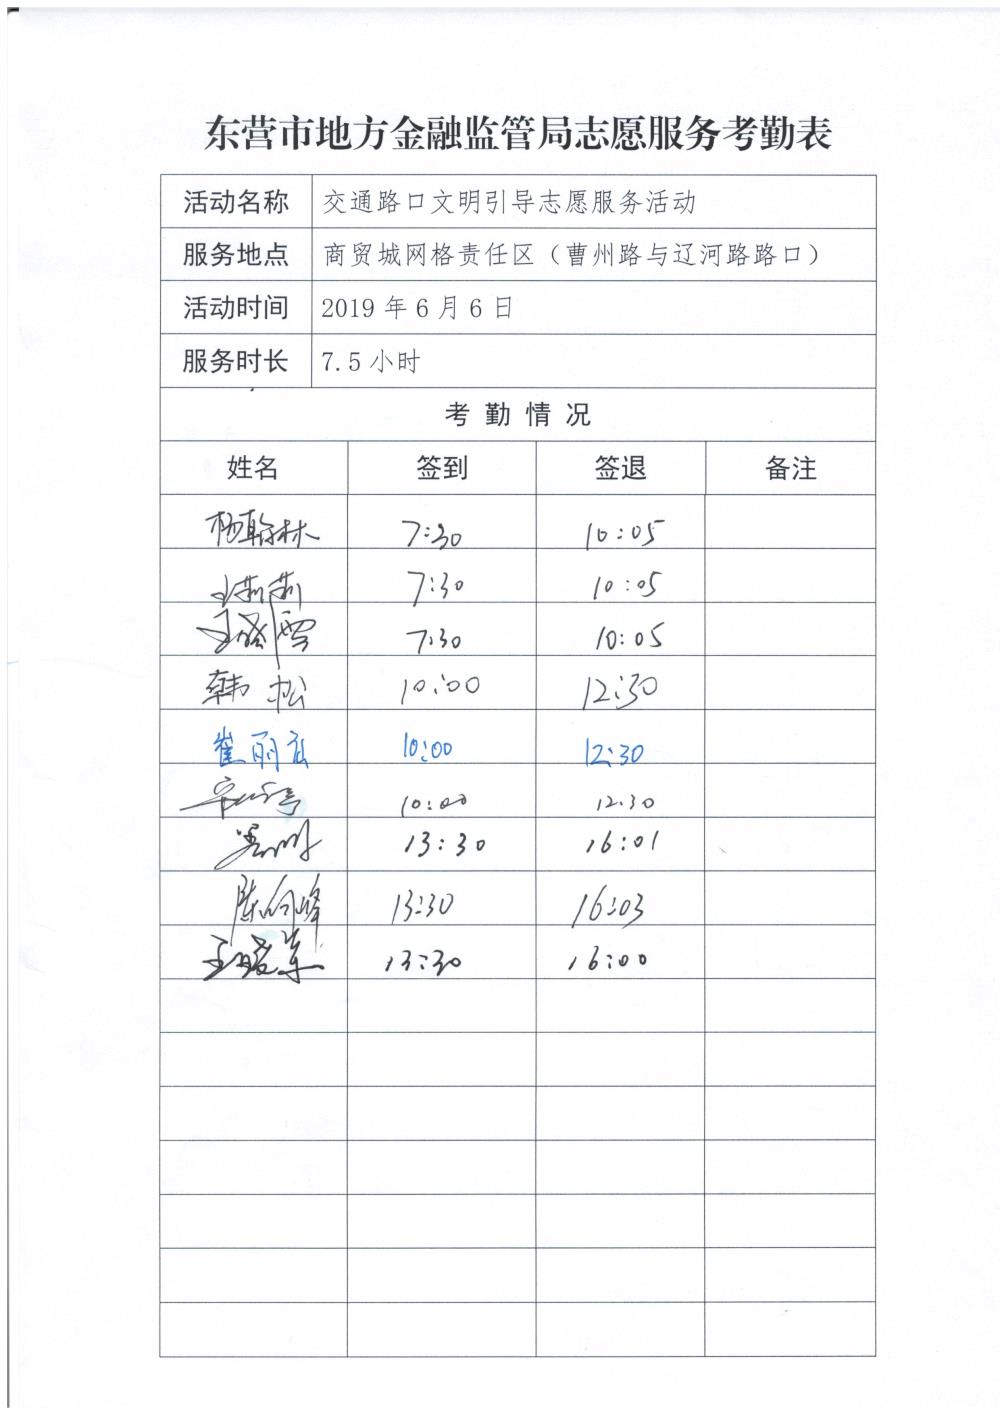 东营市地方金融监管局志愿服务考勤表
活动名称 交通路口文明引导志愿服务活动
服务地点 商贸城网格责任区（曹州路与辽河路路口）
活动时间 2019年6月6日
服务时长 7.5小时
考勤情况
姓名 签到 签退 备注
杨翰林 7:30 10:05
王莉莉 7:30 10:05
王晓雪 7:30 10:05
韩松 10:00 12:30
崔丽 10:00 12:30
10:00 12:30
13:30 16:01
陈向峰 13:30 16:03
王晓东 13:30 16:00